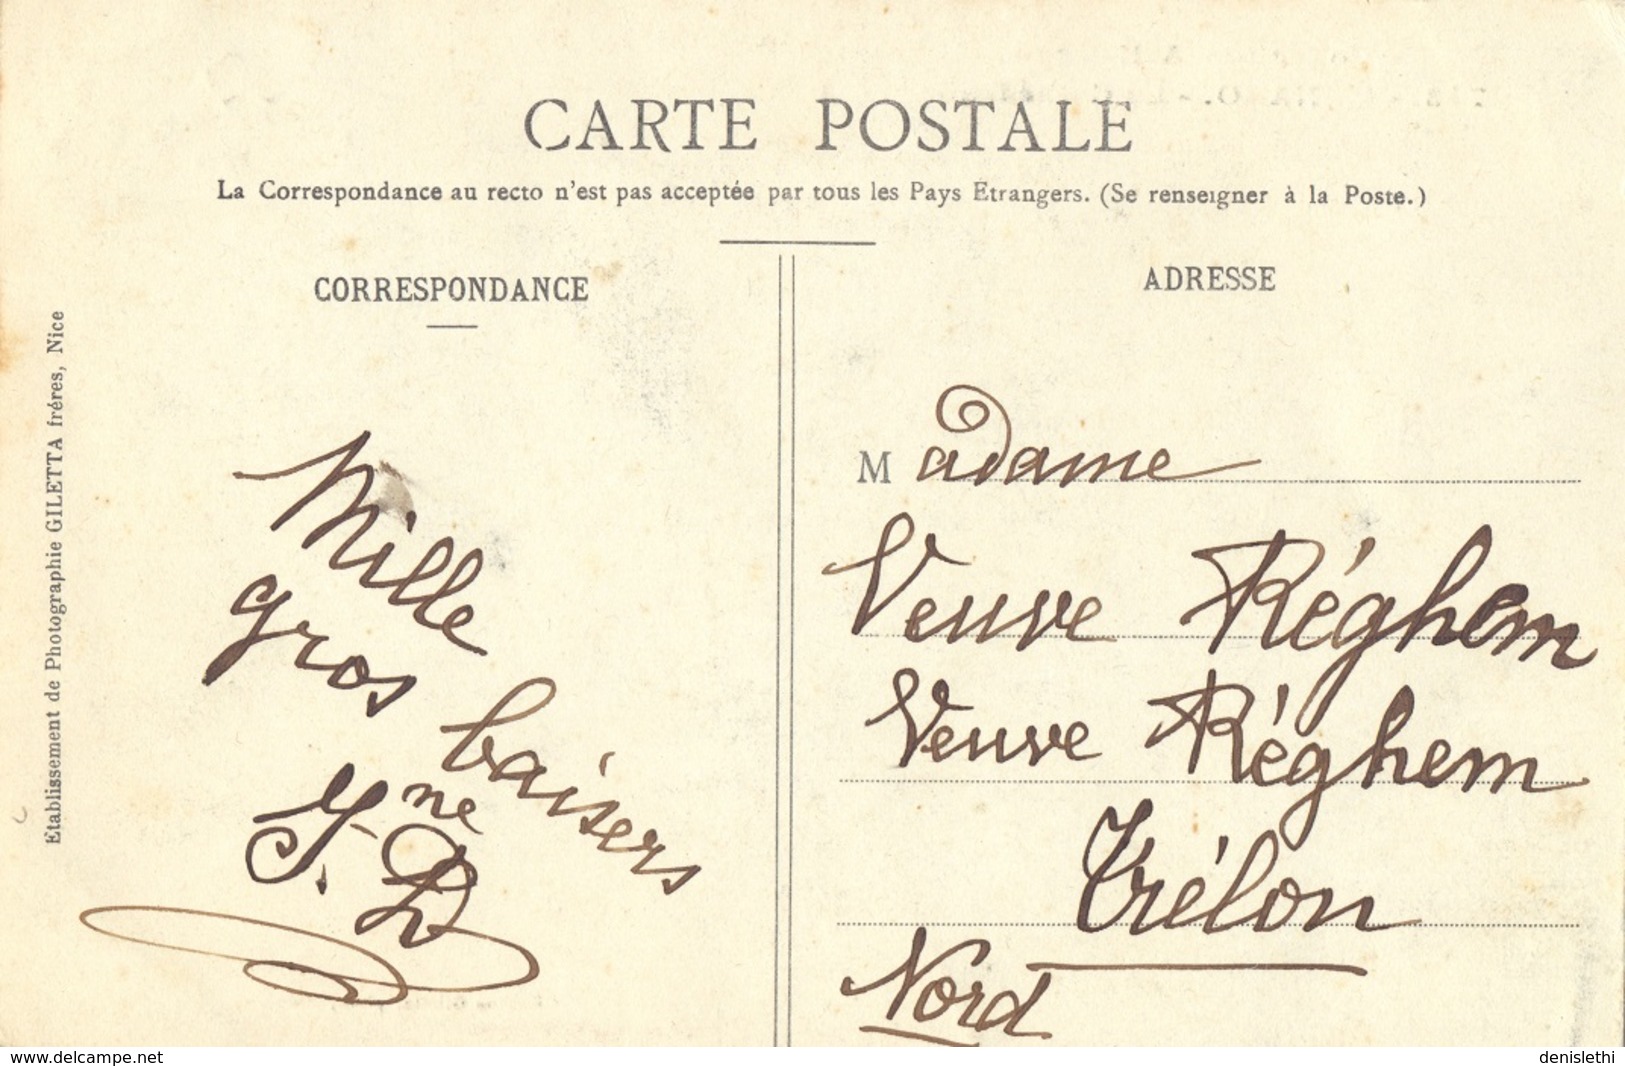 CARTE POSTALE
La Correspondance au recto n'est pas acceptée par tous les Pays Etrangers. (Se renseigner à la Poste.)
CORRESPONDANCE
Mille
gros baisers
ADRESSE
Madame
Veuve Réghem
Veuve Réghem
Trélon
Nord
Etablissement de Photographie GILETTA frères, Nice
www.delcampe.net
denislethi